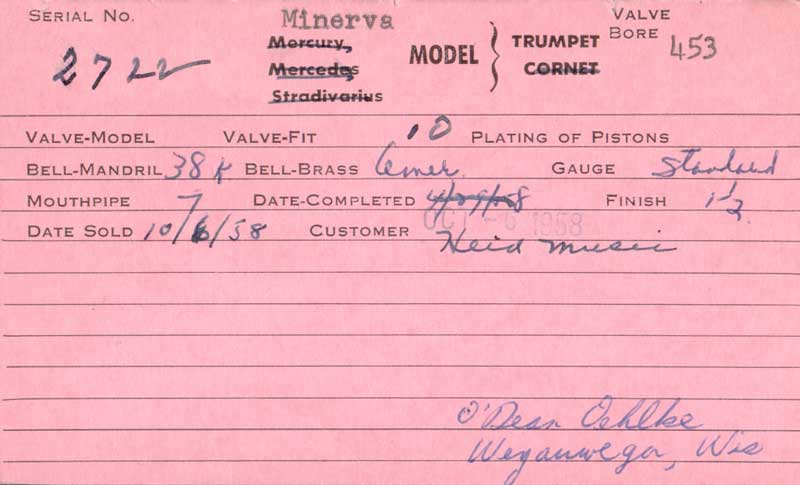 SERIAL NO. 2722
Minerva
Mercury,
Mercedes
Stradivarius
MODEL } TRUMPET
CORNET
VALVE
BORE 453
VALVE-MODEL VALVE-FIT .10 PLATING OF PISTONS
BELL-MANDRIL 38K BELL-BRASS Amer. GAUGE Standard
MOUTHPIPE 7 DATE-COMPLETED OCT -6 1958 FINISH 1 1/2
DATE SOLD 10/6/58 CUSTOMER Heid Music
O'Dean Oehlke
Weyauwega, Wis